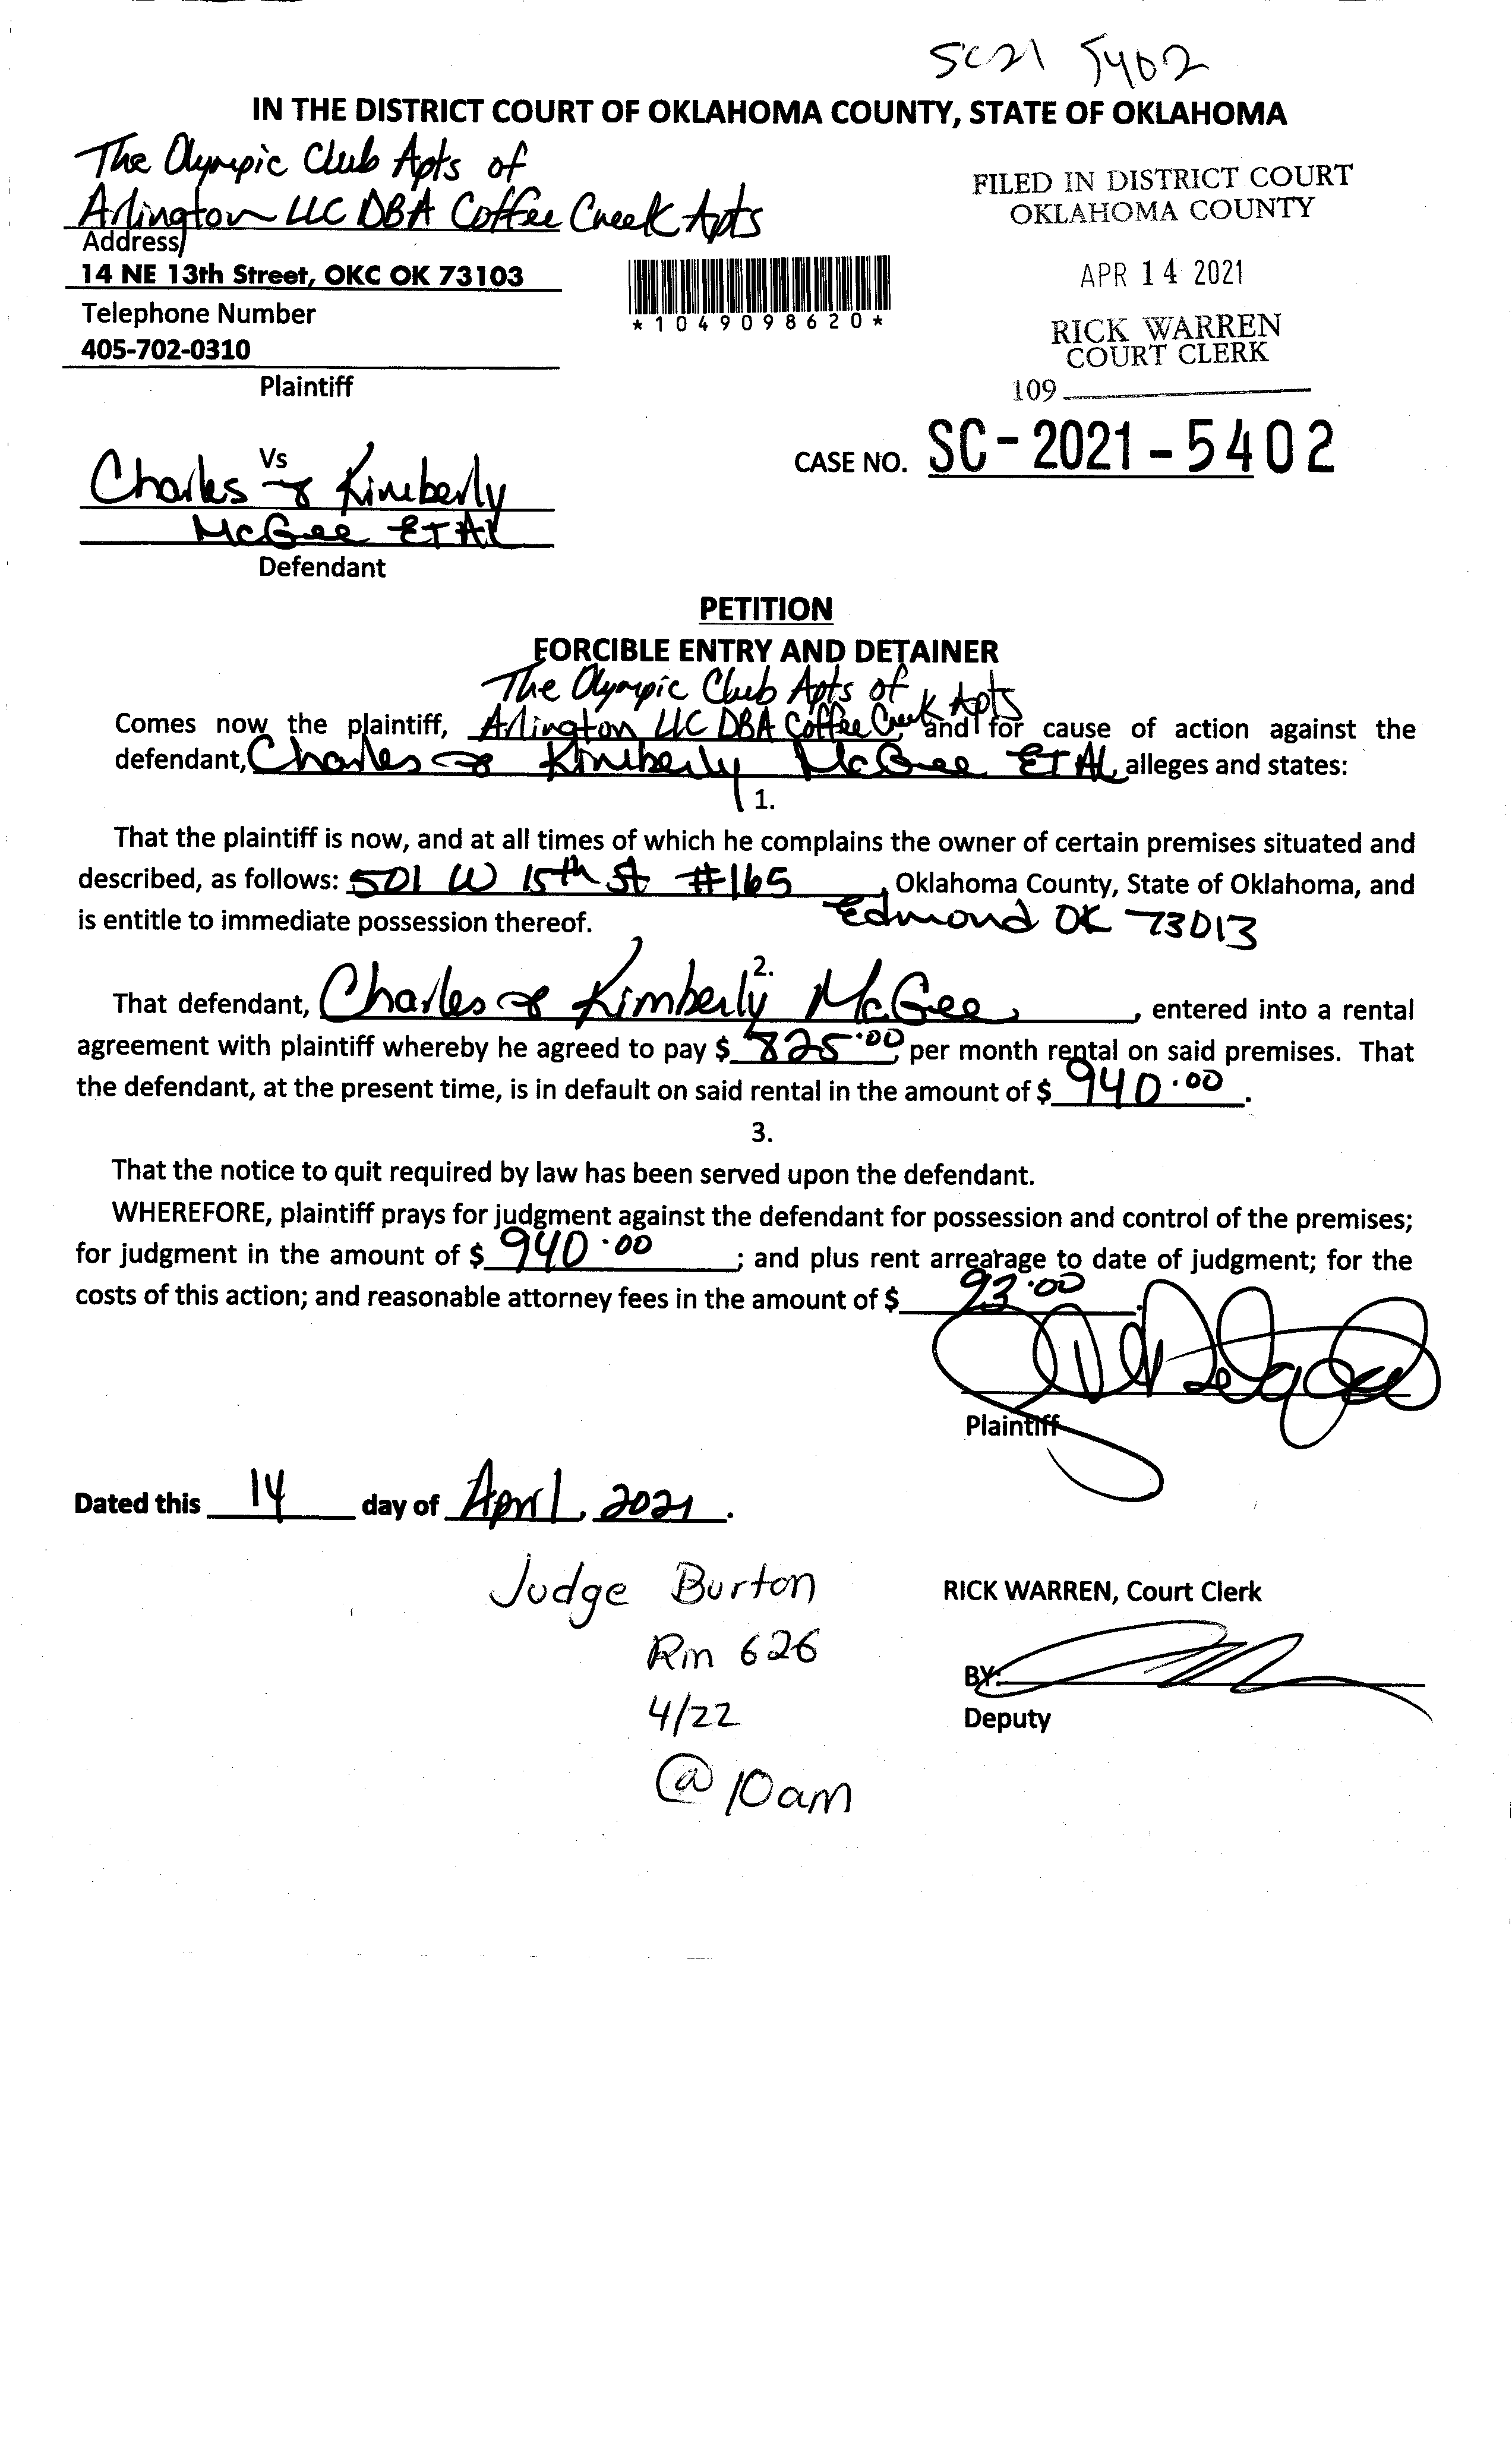 SC21 5402
IN THE DISTRICT COURT OF OKLAHOMA COUNTY, STATE OF OKLAHOMA
The Olympic Club Apts of
Arlington LLC DBA Coffee Creek Apts
Address
14 NE 13th Street, OKC OK 73103
Telephone Number
405-702-0310
Plaintiff
*1049098620*
FILED IN DISTRICT COURT
OKLAHOMA COUNTY
APR 14 2021
RICK WARREN
COURT CLERK
109
CASE NO. SC-2021-5402
Vs
Charles & Kimberly
McGee ET AL
Defendant
PETITION
FORCIBLE ENTRY AND DETAINER
The Olympic Club Apts of
Comes now the plaintiff, Arlington LLC DBA Coffee Creek Apts and for cause of action against the
defendant, Charles & Kimberly McGee ET AL, alleges and states:
1.
That the plaintiff is now, and at all times of which he complains the owner of certain premises situated and
described, as follows: 501 W 15th St #165, Oklahoma County, State of Oklahoma, and
is entitle to immediate possession thereof. Edmond OK 73013
2.
That defendant, Charles & Kimberly McGee, entered into a rental
agreement with plaintiff whereby he agreed to pay $ 825.00, per month rental on said premises. That
the defendant, at the present time, is in default on said rental in the amount of $ 940.00.
3.
That the notice to quit required by law has been served upon the defendant.
WHEREFORE, plaintiff prays for judgment against the defendant for possession and control of the premises;
for judgment in the amount of $ 940.00; and plus rent arrearage to date of judgment; for the
costs of this action; and reasonable attorney fees in the amount of $ 93.00.
Plaintiff
Dated this 14 day of April, 2021.
Judge Burton
Rm 626
4/22
@ 10am
RICK WARREN, Court Clerk
BY:
Deputy